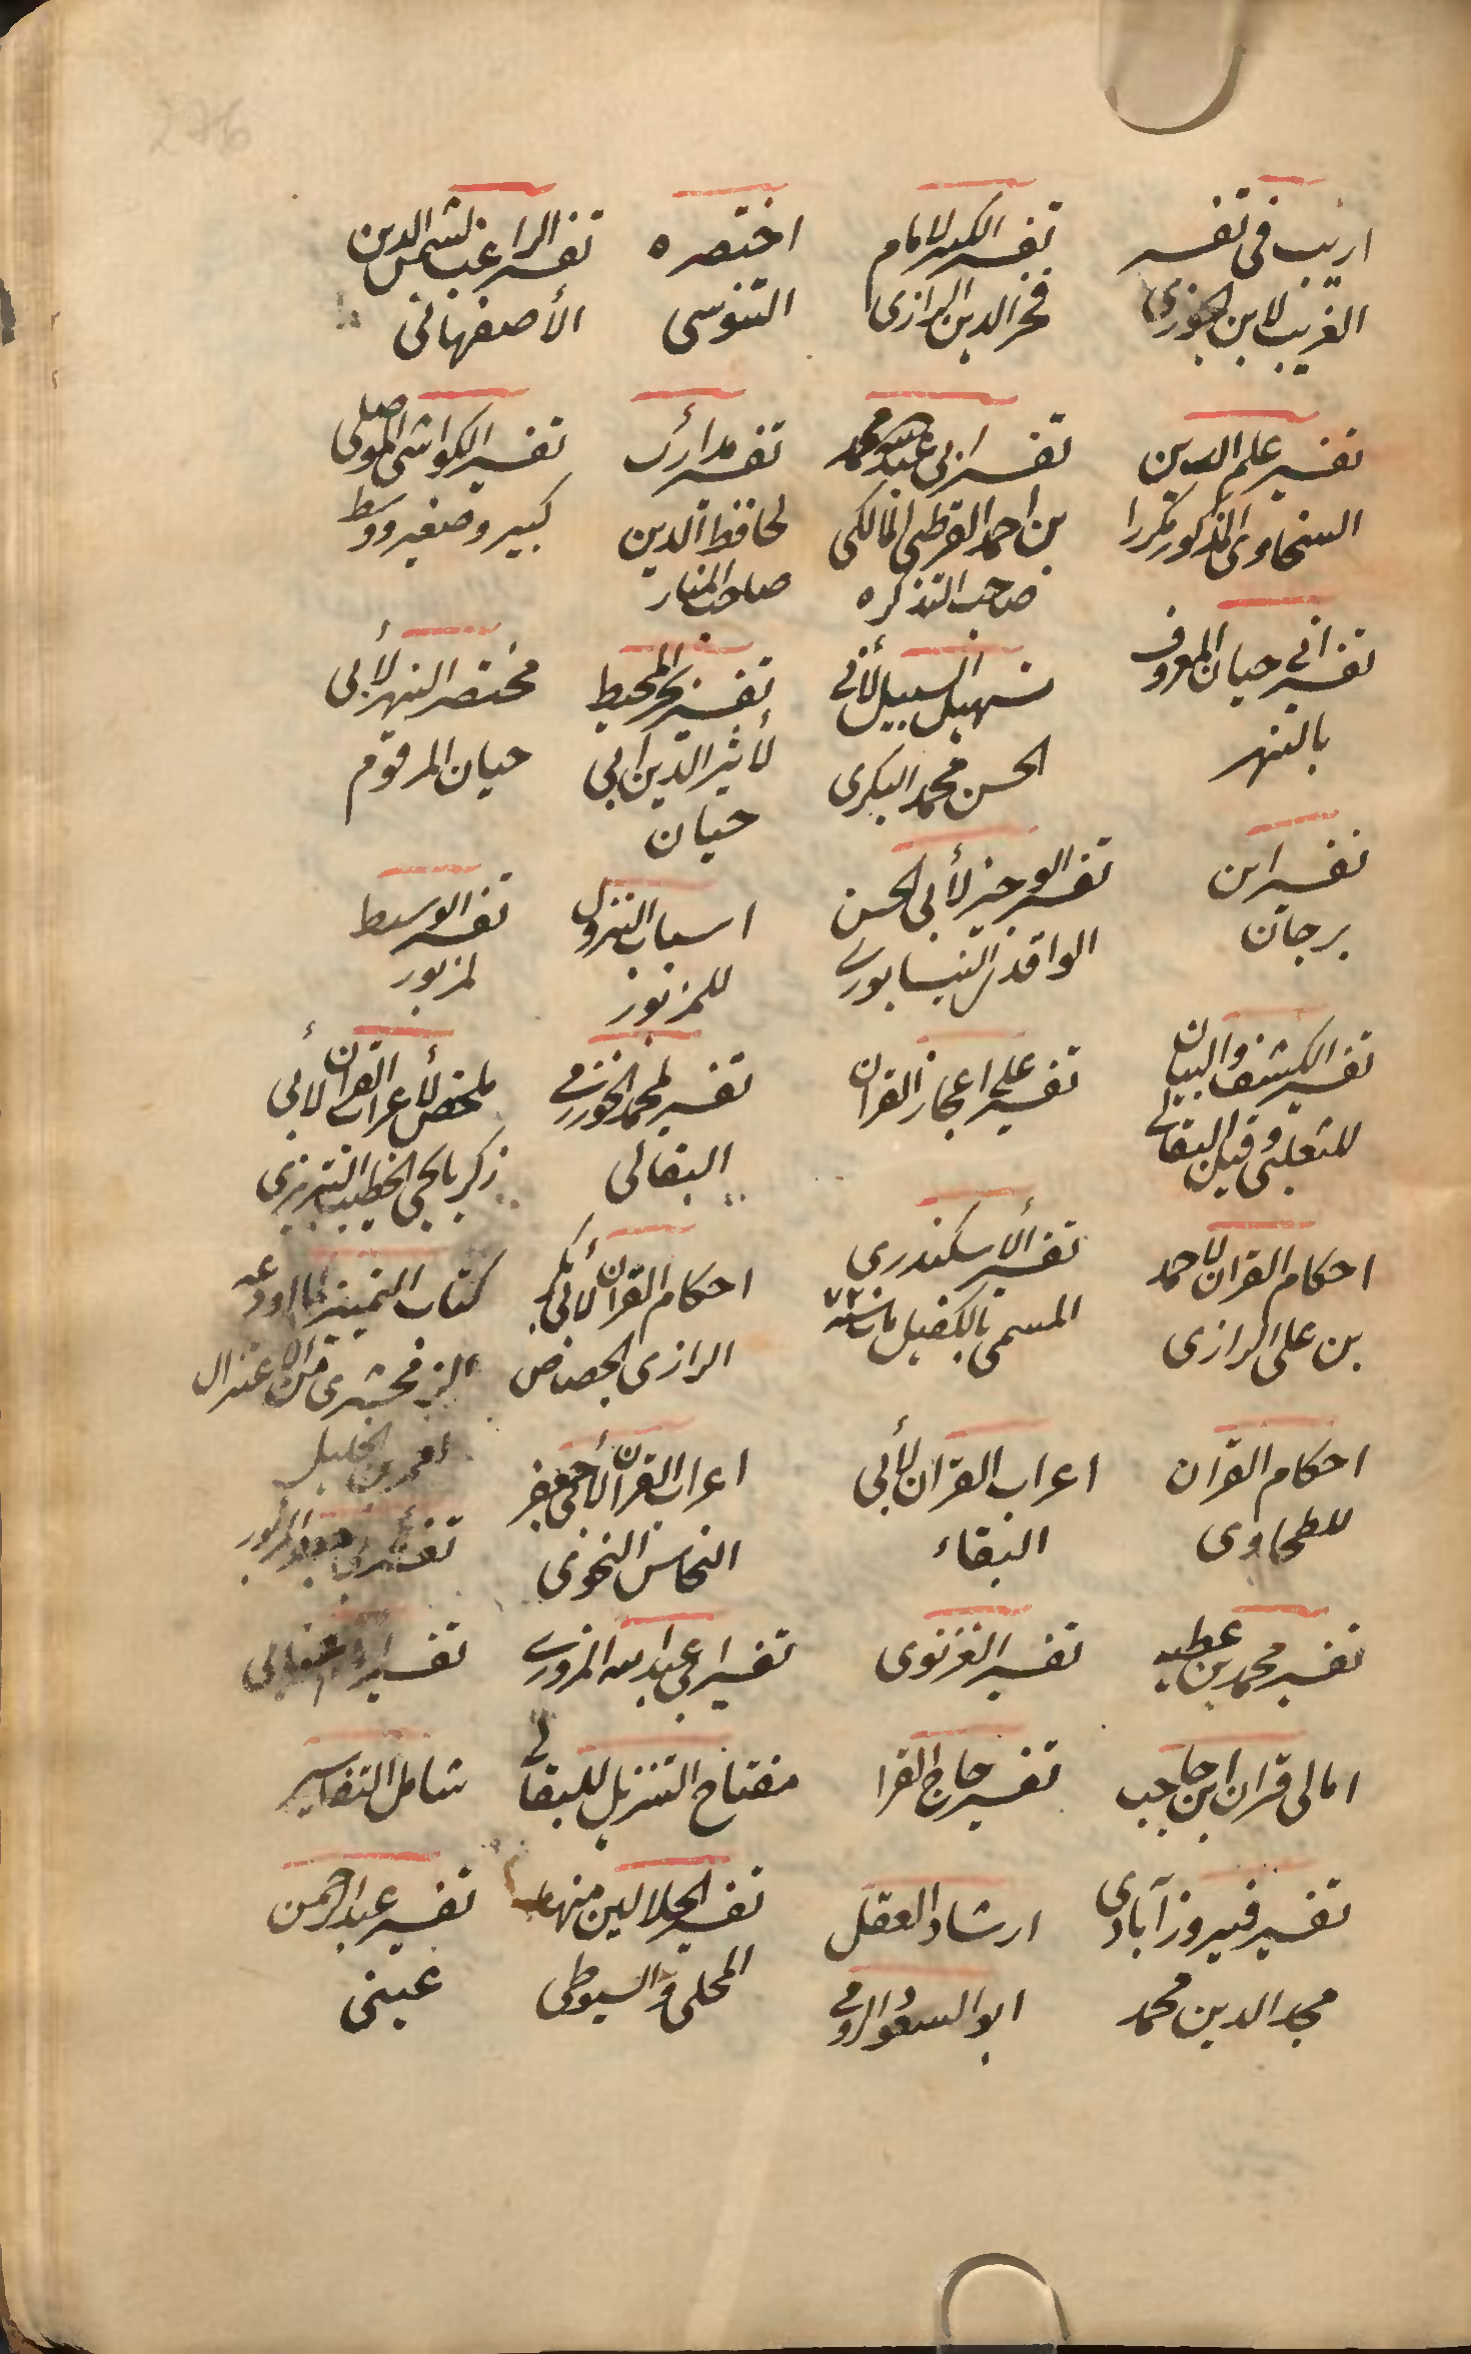 276
اريب فى تفسير
الغريب لابن الجوزى
تفسير الكبير لامام
فخر الدين الرازى
اختصره
التنوسى
تفسير الراغب لشمس الدين
الأصفهانى
تفسير علم الدين
السخاوى المذكور مكررا
تفسير ابى عبد الله محمد
بن احمد القرطبى المالكى
صاحب التذكره
تفسير مدارك
لحافظ الدين
صاحب المنار
تفسير الكواشى الموصلى
كبير وصغير ووسط
تفسير ابى حيان المعروف
بالنهر
تسهيل السبيل لأبى
الحسن محمد البكرى
تفسير بحر المحيط
لأثير الدين ابى
حيان
مختصر النهر لأبى
حيان المرقوم
تفسير ابن
برجان
تفسير الوجيز لأبى الحسن
الواقدى النيسابورى
اسباب النزول
للمزبور
تفسير الوسيط
لمزبور
تفسير الكشف والبيان
للثعلبى وقيل البقالى
تفسير على اعجاز القران
تفسير لمحمد الخوارزمى
البقالى
ملخص لأعراب القران لأبى
زكريا يحيى الخطيب التبريزى
احكام القران لاحمد
بن على الرازى
تفسير الأسكندرى
المسمى بالكفيل مات سنة ٧٢
احكام القران لأبى بكر
الرازى الجصاص
كتاب التمييز لما اودعه
الزمخشرى من الاعتزال
احكام القران
للطحاوى
اعراب القران لأبى
البقاء
اعراب القران لأبى جعفر
النحاس النحوى
تفسير ابى جعفر المزبور
تفسير محمد بن عطيه
تفسير الغزنوى
تفسير ابى عبد الله المروزى
تفسير
امالى قران ابن حاجب
تفسير حاج القرا
مفتاح التنزيل للبقالى
شامل التفاسير
تفسير فيروز آبادى
مجد الدين محمد
ارشاد العقل
ابو السعود الرومى
تفسير الجلالين منها
المحلى والسيوطى
تفسير عبد الرحمن
عينى